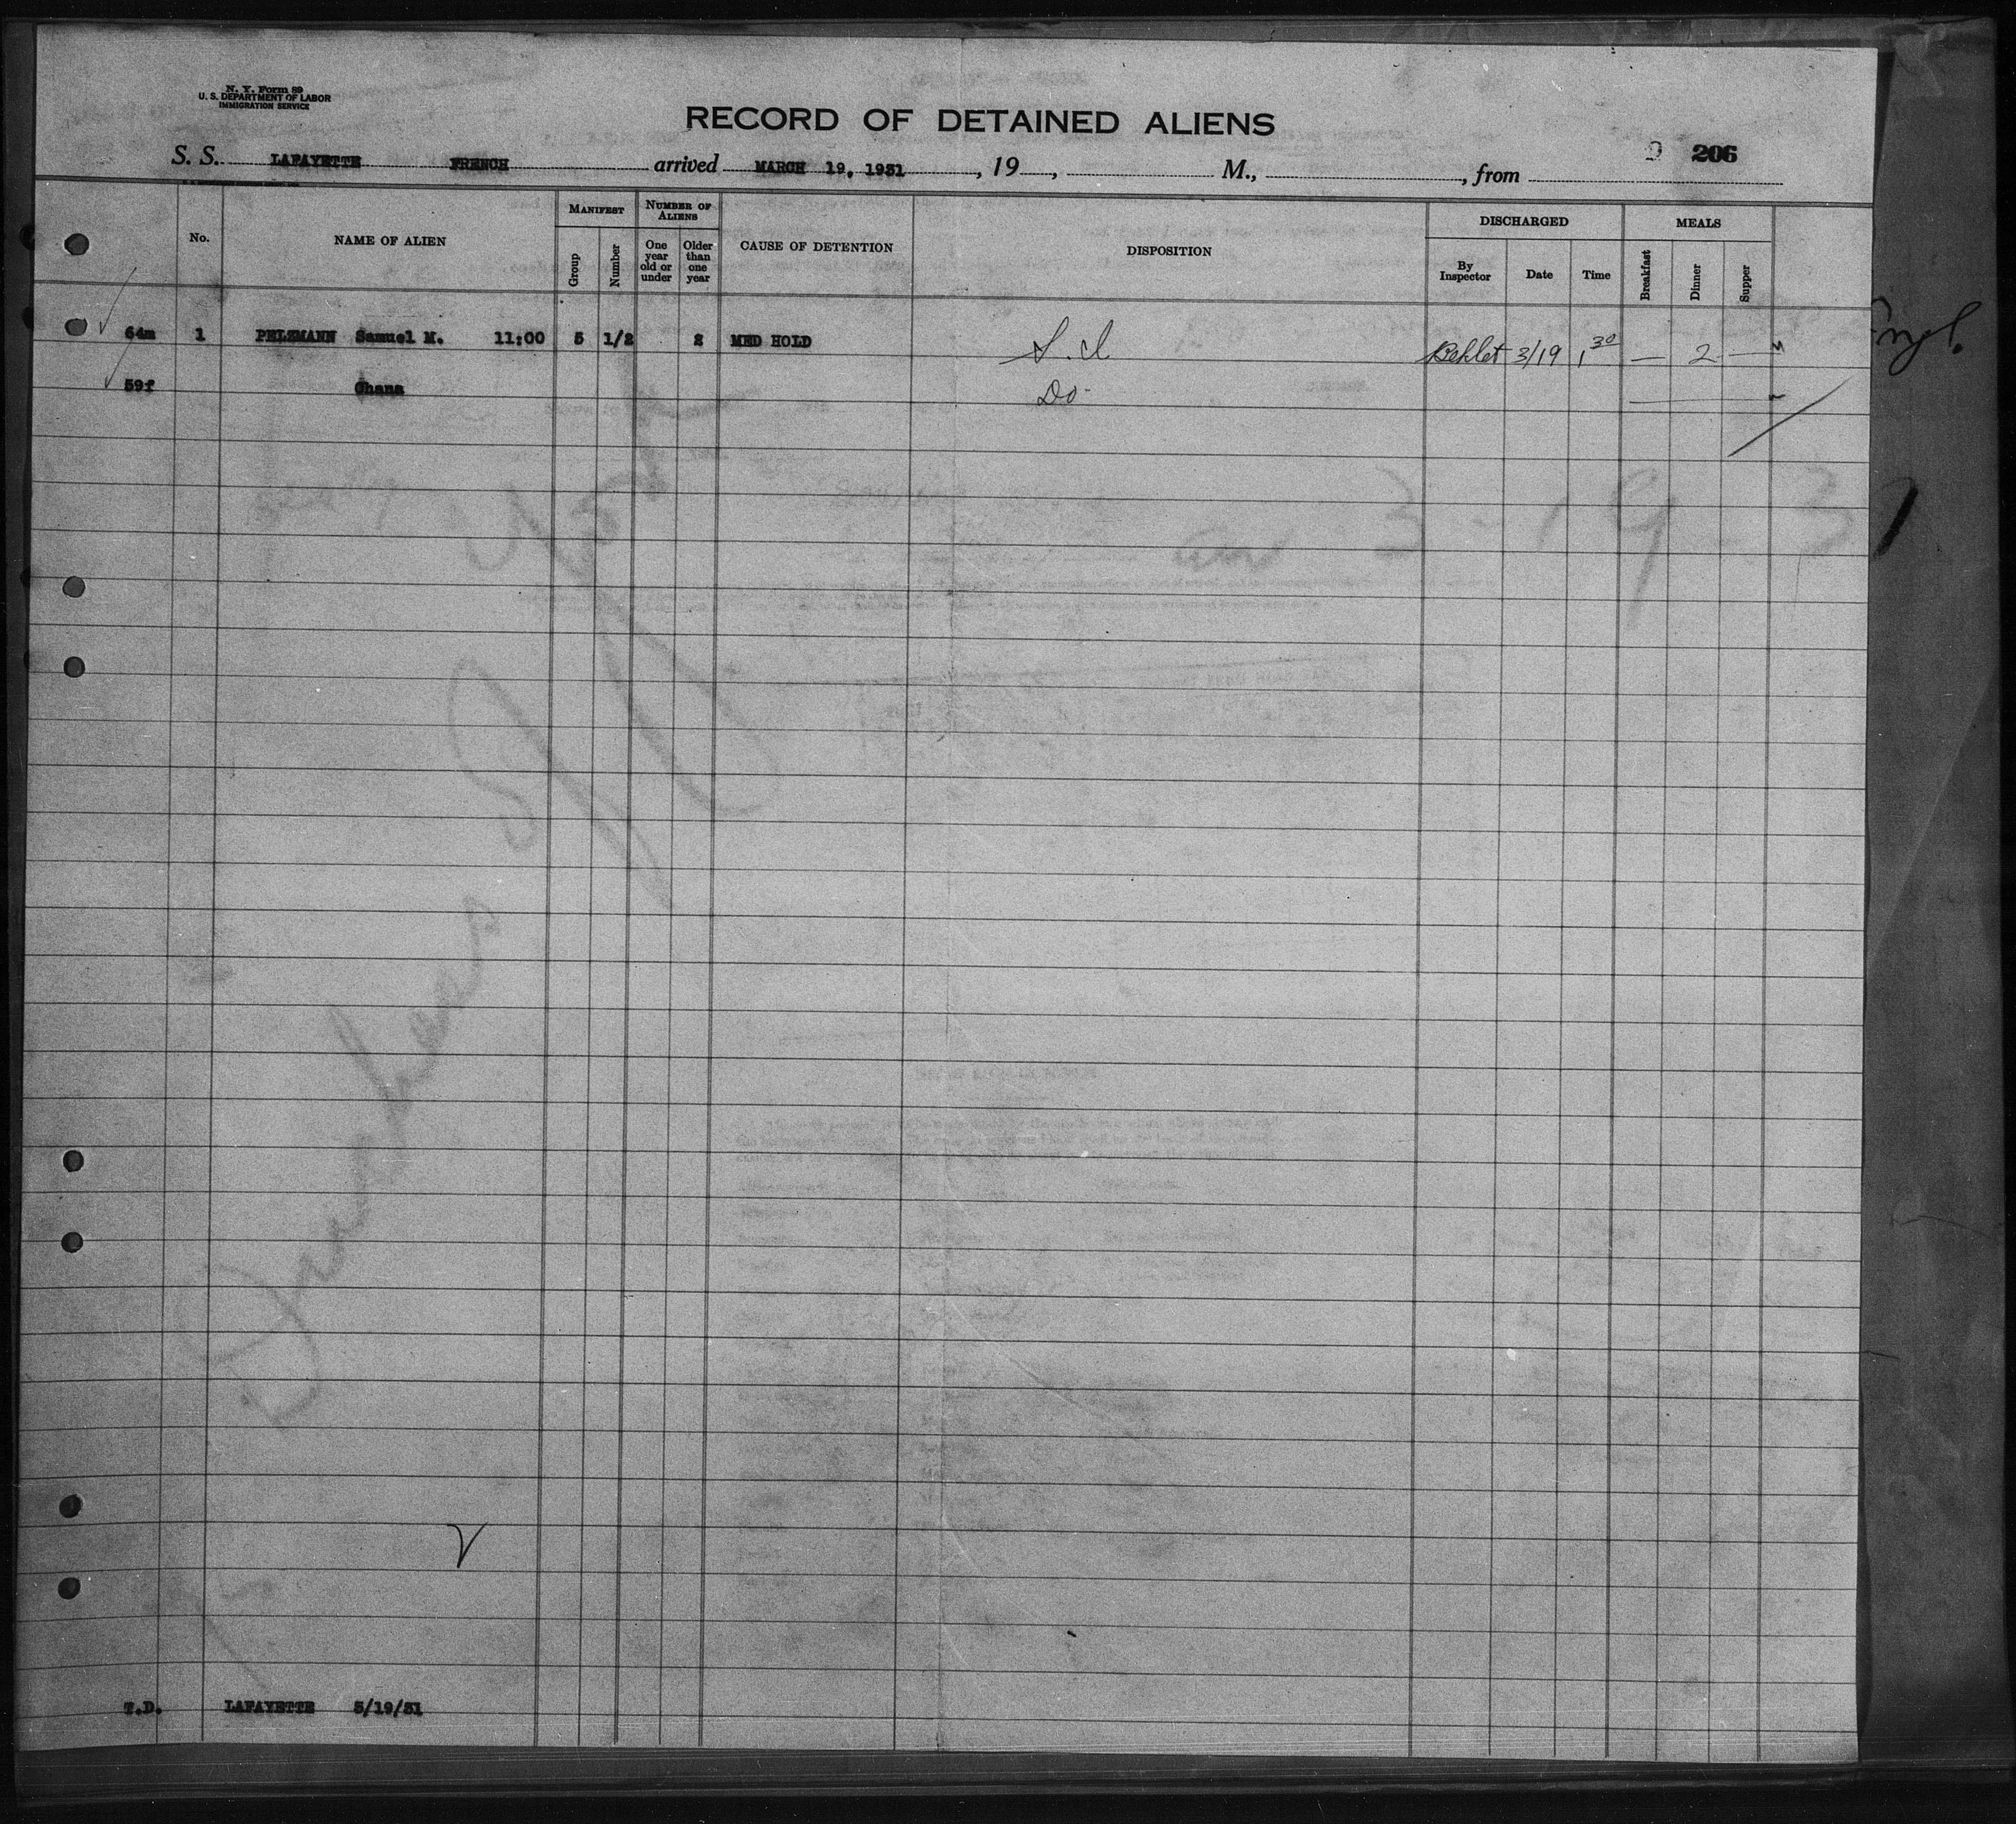 N. Y. Form 89
U. S. DEPARTMENT OF LABOR
IMMIGRATION SERVICE
RECORD OF DETAINED ALIENS
9 206
S. S. LAFAYETTE FRENCH arrived MARCH 19, 1931, 19, M., , from
No.
NAME OF ALIEN
MANIFEST
Group
Number
NUMBER OF ALIENS
One year old or under
Older than one year
CAUSE OF DETENTION
DISPOSITION
DISCHARGED
By Inspector
Date
Time
MEALS
Breakfast
Dinner
Supper
64m 1 PELZMANN Samuel M. 11:00 5 1/2 2 MED HOLD 3/19 1 30 — 2 —
59f Chana Do
T.D. LAFAYETTE 3/19/31